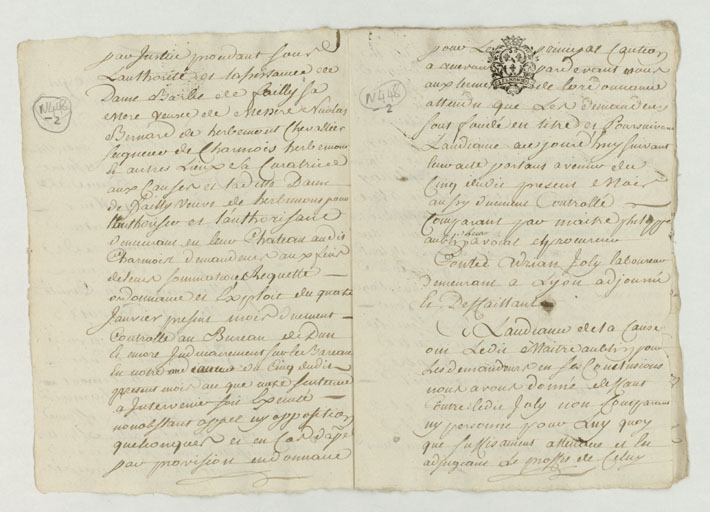 par Justice prendant sous
L'authorité et assistance de
Dame Barbe de Pailly sa
mere veuve de Messire Nicolas
Bernard de herbemont Chevallier
seigneur de Charmois herbemont
& autres Lieux sa Curatrice
aux Causes et laditte Dame
de Pailly veuve de herbemont pour
l'authoriser et l'authorisant
demeurant en leur Chateau audit
Charmois demandeurs aux fins
de leur sommation Requette
ordonnance et Exploit du quatre
Janvier present mois duement
Controllé au Bureau de Dun
le more Judiciairement sur le Bareau
en notre audience du Cinq dudit
present mois que notre sentence
a Intervenir soit Executée
nonobstant appel ny opposition
quelconques et en Cas d'appel
par provision en donnant
N448
2
pour Le principal Caution
a pardevant nous
aux termes de lordonnance
attendu que Les demandeurs
sont fondé en titre et Poursuivent
Laudiance adjourd'huy suivant
leur acte portant avenir du
Cinq dudit present mois
aussy duement Controllé
Comparant par maitre philippe
aubry avocat et procureur
Contre Adrian Joly laboureur
demeurant a Lyon adjourné
et Deffaillant
N448
2
A Laudiance de la Cause
oui Ledit Maitre aubry pour
Les demandeurs en ses Conclusions
nous avons donné deffaut
Contre ledit Joly non Comparant
ny personne pour Luy quoy
que suffisament attendu et en
adjugeant Le proffit de Celuy